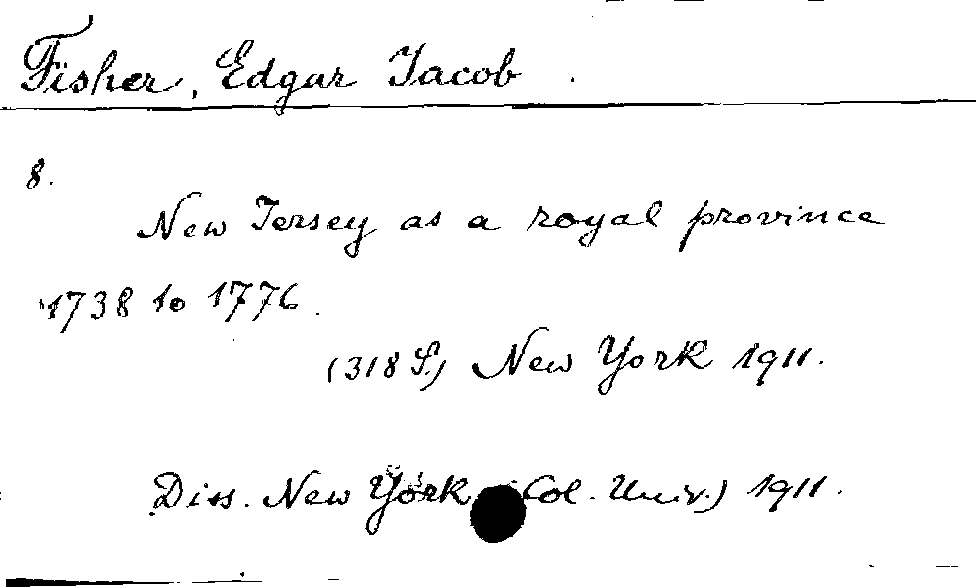 Fisher, Edgar Jacob
8.
New Jersey as a royal province
1738 to 1776.
(318 S.) New York 1911.
Diss. New York (Col. Univ.) 1911.